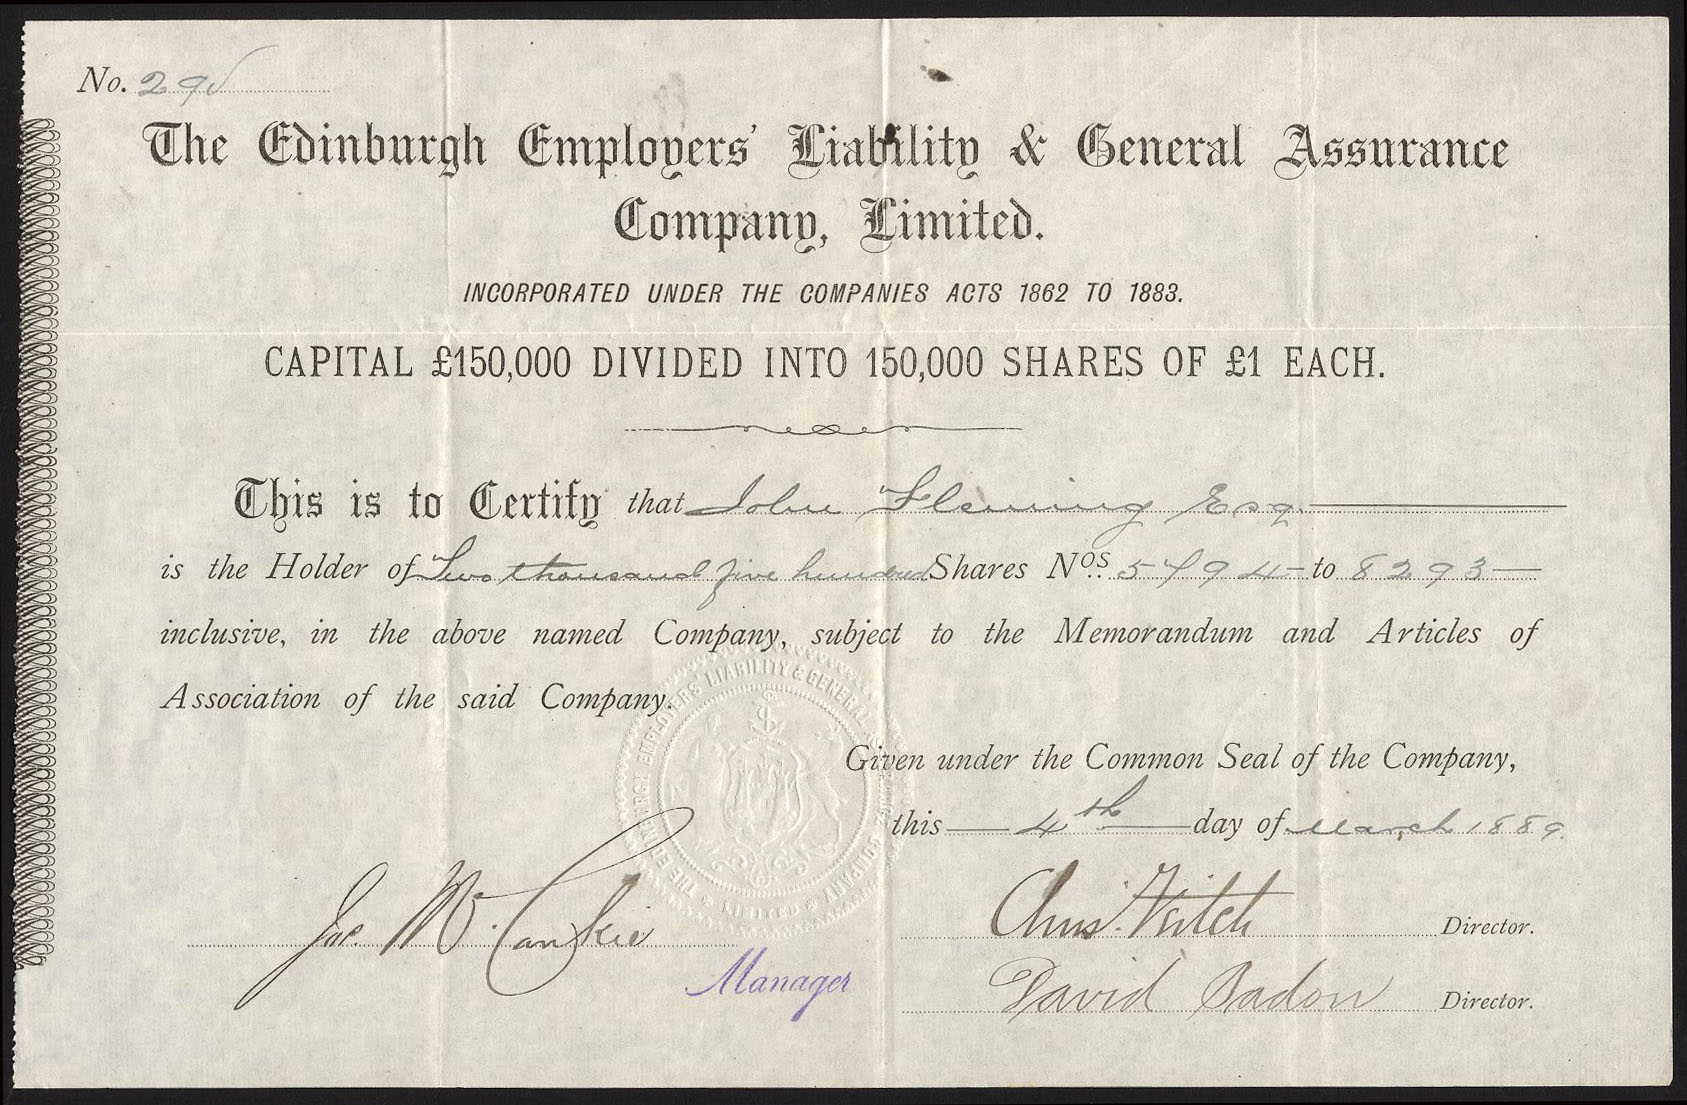 No. 295
The Edinburgh Employers' Liability & General Assurance
Company, Limited.
INCORPORATED UNDER THE COMPANIES ACTS 1862 TO 1883.
CAPITAL £150,000 DIVIDED INTO 150,000 SHARES OF £1 EACH.
This is to Certify that John Fleming Esq.
is the Holder of Two thousand five hundred Shares Nos. 5794 to 8293
inclusive, in the above named Company, subject to the Memorandum and Articles of
Association of the said Company.
THE EDINBURGH EMPLOYERS LIABILITY & GENERAL COMPANY LIMITED
Given under the Common Seal of the Company,
this 4th day of March 1889.
Chas. Veitch Director.
Manager
David Director.